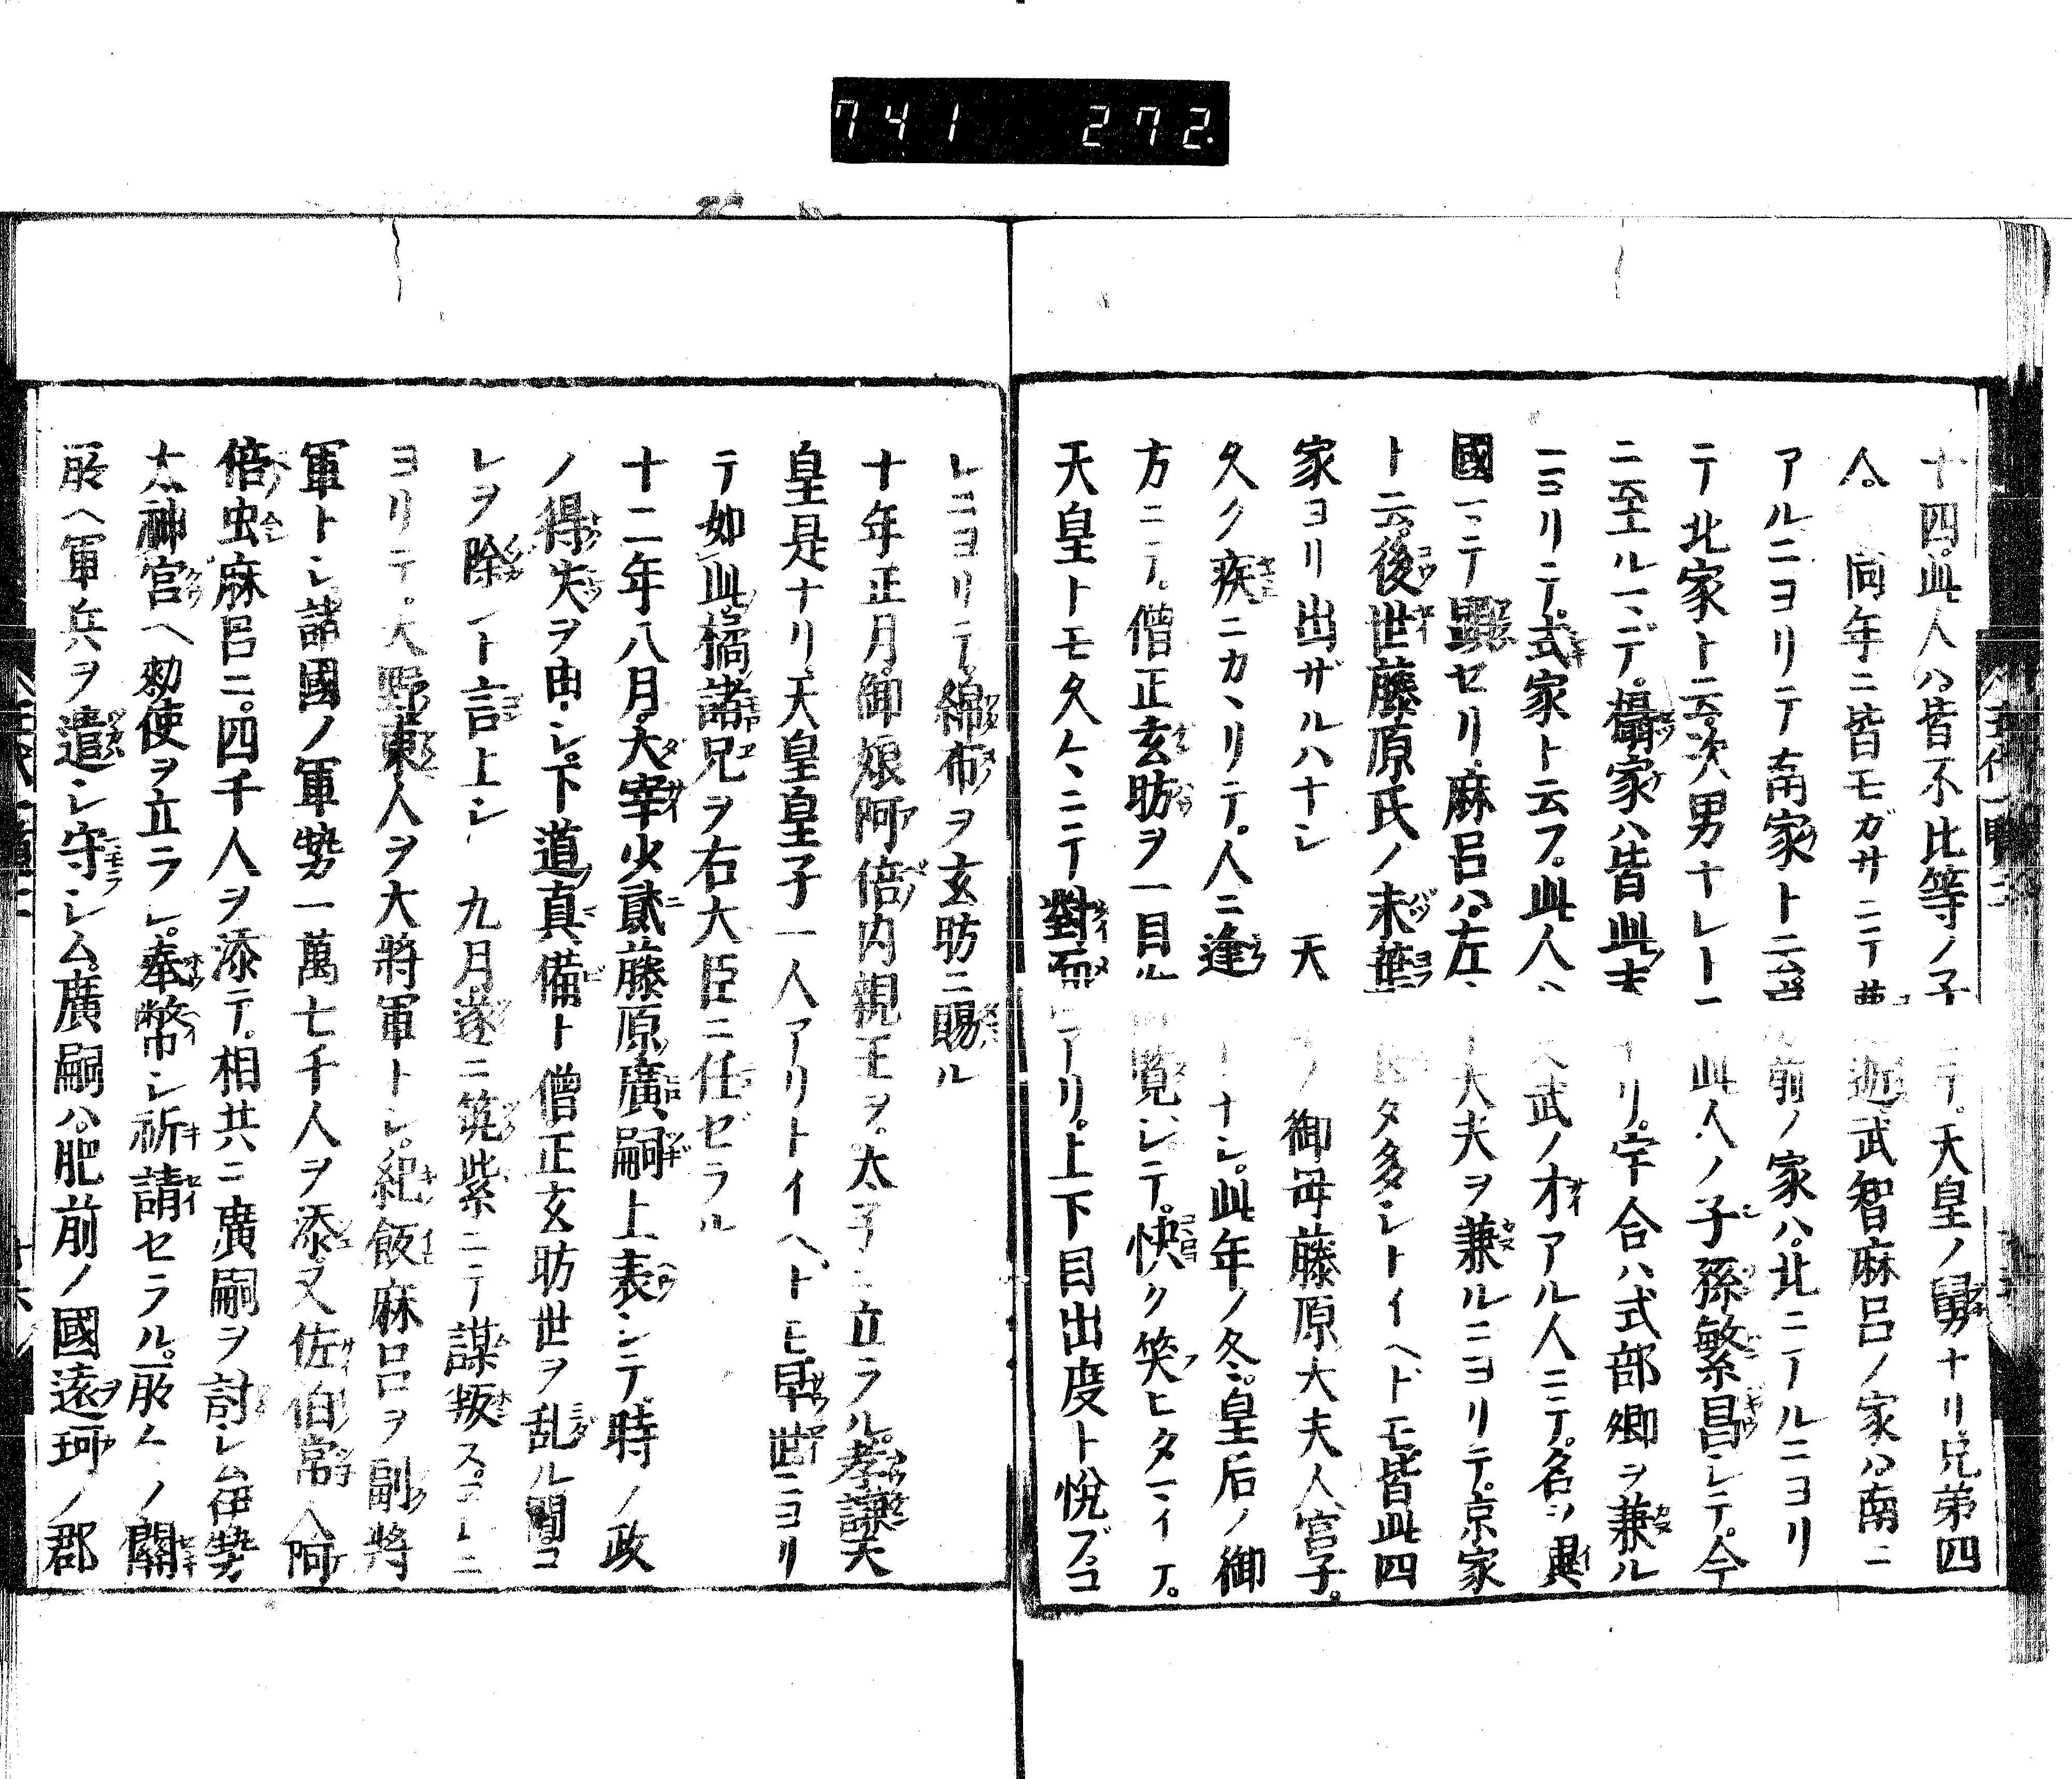 741 272.
十四。此人ハ。皆不比等ノ子ニテ。天皇ノ舅ナリ。兄弟四
人。同年ニ皆モガサニテ薨逝。武智麻呂ノ家ハ。南ニ
アルニヨリテ南家ト云。房前ノ家ハ。北ニアルニヨリ
テ北家ト云。次男ナレト。此人ノ子孫繁昌シテ。今
ニ至ルマデ。攝家ハ皆此末ナリ。宇合ハ式部卿ヲ兼ル
ニヨリテ。式家ト云フ。此人ハ文武ノ才アル人ニテ。名ヲ異
國マデ顕セリ。麻呂ハ。左京大夫ヲ兼ルニヨリテ。京家
ト云。後世藤原氏ノ末葉タ多シトイヘドモ。皆此四
家ヨリ出ザルハナシ 天皇ノ御母藤原大夫人宮子。
久ク疾ニカヽリテ。人ニ逢ナシ。此年ノ冬。皇后ノ御
方ニテ。僧正玄昉ヲ一目御覧シテ。快ク笑ヒタマイテ。
天皇トモ久々ニテ對面アリ。上下目出度ト悅ブコ
レニヨリテ。綿布ヲ玄昉ニ賜ル
十年正月。御娘阿倍内親王ヲ。太子ニ立ラル。孝謙天
皇是ナリ。天皇皇子一人アリトイヘトモ早世ニヨリ
テ如此。橘諸兄ヲ右大臣ニ任ゼラル
十二年八月。大宰少貳藤原廣嗣上表シテ。時ノ政
ノ得失ヲ申シ。下道真備ト僧正玄昉世ヲ乱ル間。コ
レヲ除ント言上シ 九月遂ニ筑紫ニテ謀叛ス。コレニ
ヨリテ。大野東人ヲ大將軍トシ。紀飯麻呂ヲ副將
軍トシ諸國ノ軍勢一萬七千人ヲ添。又佐伯常人阿
倍虫麻呂ニ。四千人ヲ添テ。相共ニ廣嗣ヲ討シム。伊勢
太神宮ヘ勅使ヲ立ラレ。奉幣シ祈請セラル。所々ノ關
所ヘ軍兵ヲ遣シ守シム。廣嗣ハ。肥前ノ國遠珂ノ郡